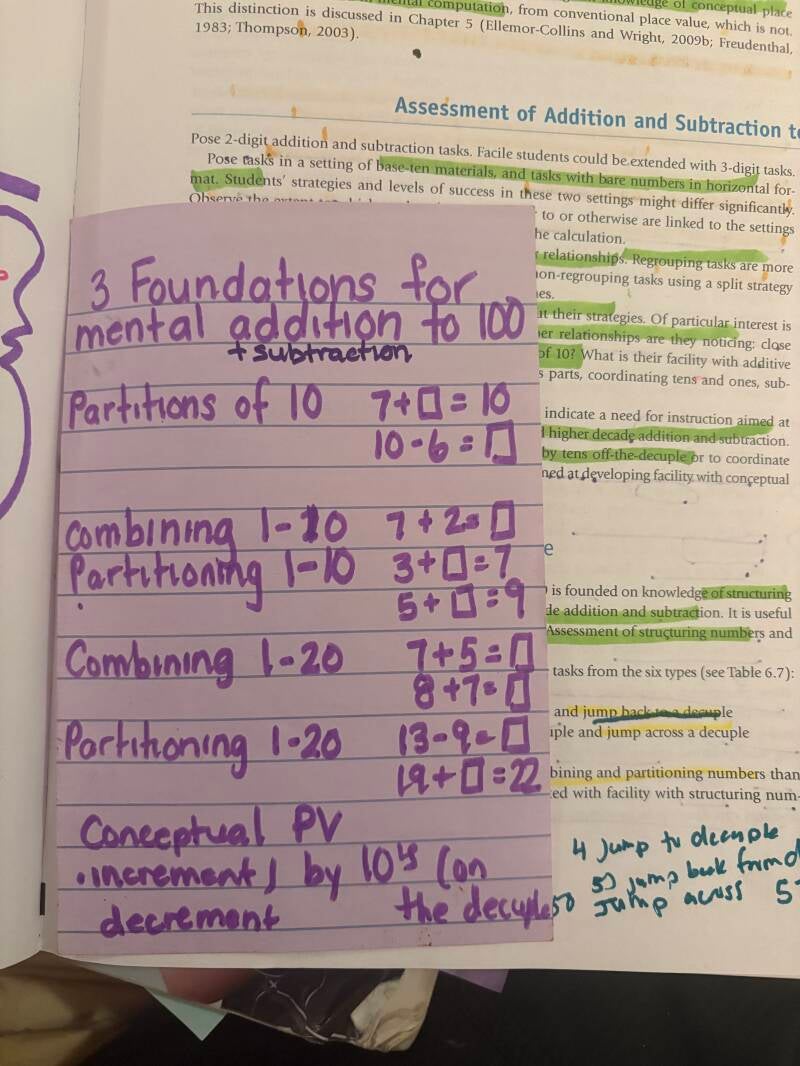 mental computation, from conventional place value, which is not.
This distinction is discussed in Chapter 5 (Ellemor-Collins and Wright, 2009b; Freudenthal,
1983; Thompson, 2003).
Assessment of Addition and Subtraction to
Pose 2-digit addition and subtraction tasks. Facile students could be extended with 3-digit tasks.
Pose tasks in a setting of base-ten materials, and tasks with bare numbers in horizontal for-
mat. Students' strategies and levels of success in these two settings might differ significantly.
Observe the
to or otherwise are linked to the settings
he calculation.
relationships. Regrouping tasks are more
non-regrouping tasks using a split strategy
es.
at their strategies. Of particular interest is
er relationships are they noticing: close
of 10? What is their facility with additive
s parts, coordinating tens and ones, sub-
indicate a need for instruction aimed at
higher decade addition and subtraction.
by tens off-the-decuple or to coordinate
ned at developing facility with conceptual
e
is founded on knowledge of structuring
de addition and subtraction. It is useful
Assessment of structuring numbers and
tasks from the six types (see Table 6.7):
and jump back to a decuple
uple and jump across a decuple
bining and partitioning numbers than
ed with facility with structuring num-
3 Foundations for
mental addition to 100
+ subtraction
Partitions of 10 7+□=10
10-6=□
Combining 1-10 7+2=□
Partitioning 1-10 3+□=7
5+□=9
Combining 1-20 7+5=□
8+7=□
Partitioning 1-20 13-9=□
19+□=22
Conceptual PV
• increment by 10's (on
decrement the decuple
4 jump to decuple
jump back from
50 Jump across 5